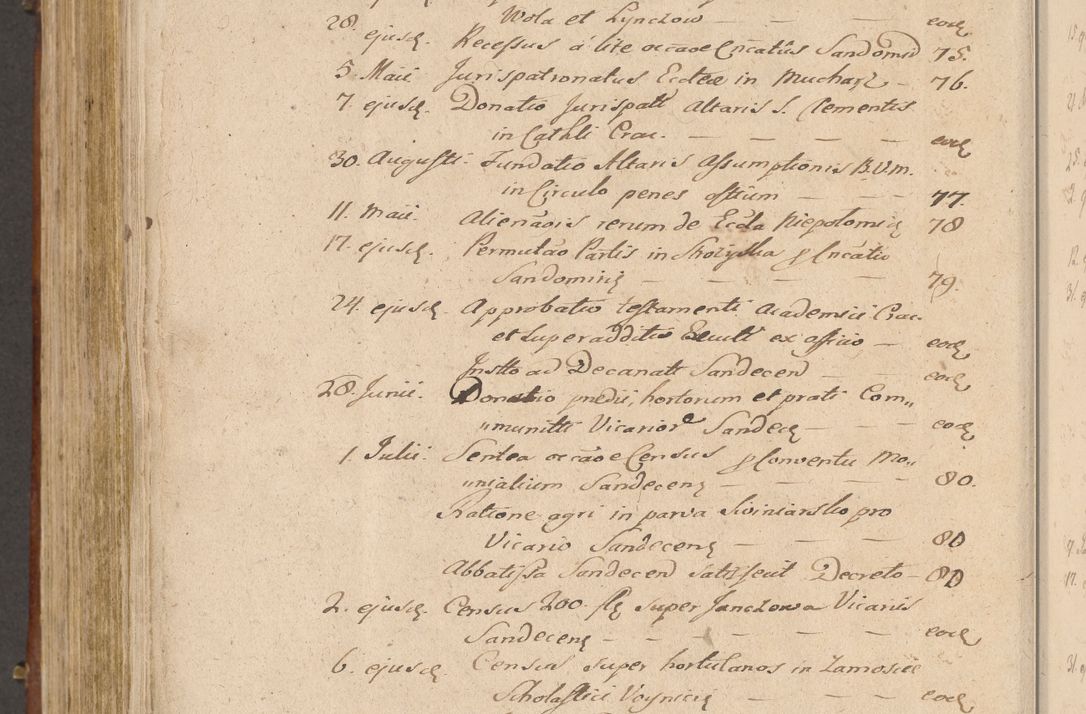 Wola et Lynchow — — — eode
28. ejusd. Recessus á lite occãoe Cñcatûs Sandomi͠r 75.
5. Maii Jurispatronatus Ecclae in Mucharz — 76.
7. ejusd. Donatio Jurispatt Altaris S. Clementis
in Cathli Crac. — — — — eode
30. Augusti. Fundatio Altaris Assumptionis B.V.M.
in Circulo penes ostium — — 77.
11. Maii. Alienãois rerum de Eccla Niepolomic 78
17. ejusd. Permutão Partis in
Sandomirie — — — — 79.
24. ejusd. Approbatio testamenti Academici Crac.
et superadditio ex officio — eode
Instto ad Decanatt Sandecen — — eode
28. Junii. Donatio predii, hortorum et prati Com„
„munitti Vicarior Sandece — — eode
1. Julii. Sentea occãoe Census p Conventu Mo„
„nialium Sandecene — — — 80.
Ratione agri in parva pro
Vicario Sandecene — — — 80
Abbatissa Sandecen satisfecit Decreto — 80
2. ejusd. Census 200. fle super Janczowa Vicariis
Sandecene — — — — eode
6. ejusd Census super hortulanos in Zamoscie
Scholastici Voynicie — — — eode